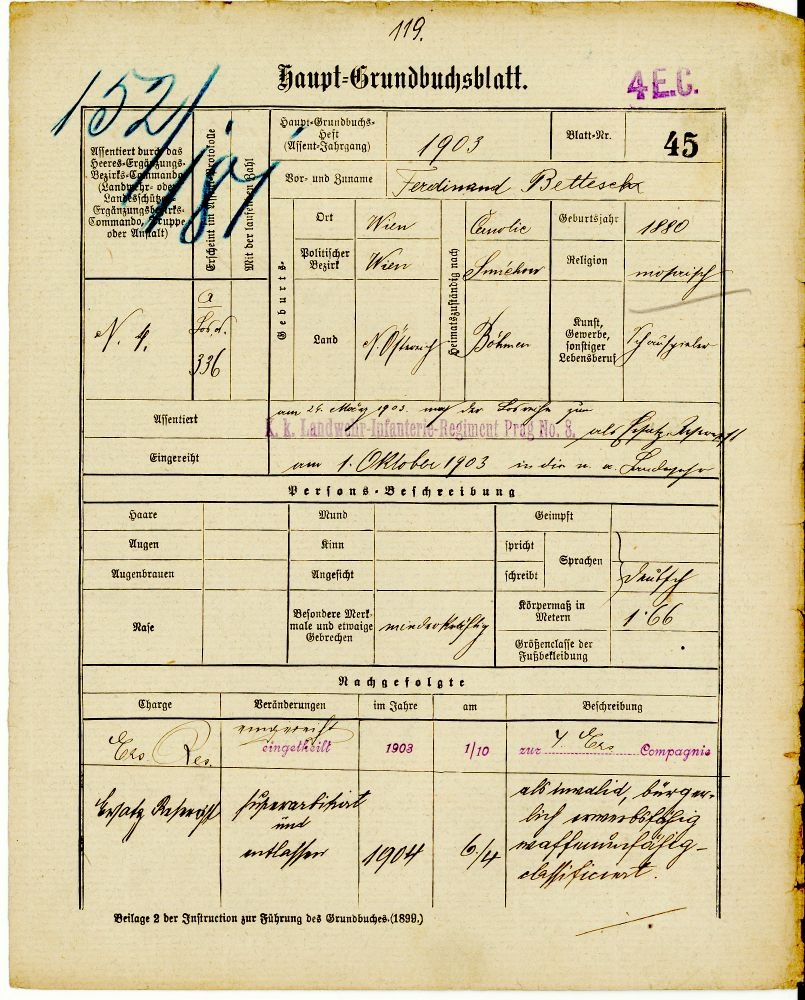 119.
Haupt-Grundbuchsblatt.
4 E.C.
152/
Assentiert durch das
Heeres-Ergänzungs-
Bezirks-Commando
(Landwehr- oder
Landesschützen-
Ergänzungsbezirks-
Commando, Truppe
oder Anstalt)
Erscheint im Assent-Protokolle
Mit der laufenden Zahl
Haupt-Grundbuchs-
Heft
(Assent-Jahrgang)
1903
Blatt-Nr.
45
Vor- und Zuname
Ferdinand
Geburts-
Ort
Wien
Politischer
Bezirk
Wien
Land
N. Österreich
Heimatszuständig nach
Smichow
Böhmen
Geburtsjahr
1880
Religion
mosaisch
Kunst,
Gewerbe,
sonstiger
Lebensberuf
Schauspieler
N. 4.
a
336
Assentiert
am 24. März 1903. nach der Losreihe zum
K. k. Landwehr-Infanterie-Regiment Prag No. 8.
als Ersatz-Reservist
Eingereiht
am 1. Oktober 1903 in die Landwehr
Persons-Beschreibung
Haare
Mund
Geimpft
Augen
Kinn
spricht
schreibt
Sprachen
Deutsch
Augenbrauen
Angesicht
Nase
Besondere Merk-
male und etwaige
Gebrechen
Körpermaß in
Metern
1·66
Größenclasse der
Fußbekleidung
Nachgefolgte
Charge
Veränderungen
im Jahre
am
Beschreibung
Ers. Res.
eingereiht
eingetheilt
1903
1/10
zur Ers Compagnie
Ersatz Reservist
superarbitriert
und
entlassen
1904
6/4
als invalid, bürger-
lich erwerbsfähig
waffenunfähig-
classificiert.
Beilage 2 der Instruction zur Führung des Grundbuches.(1899.)